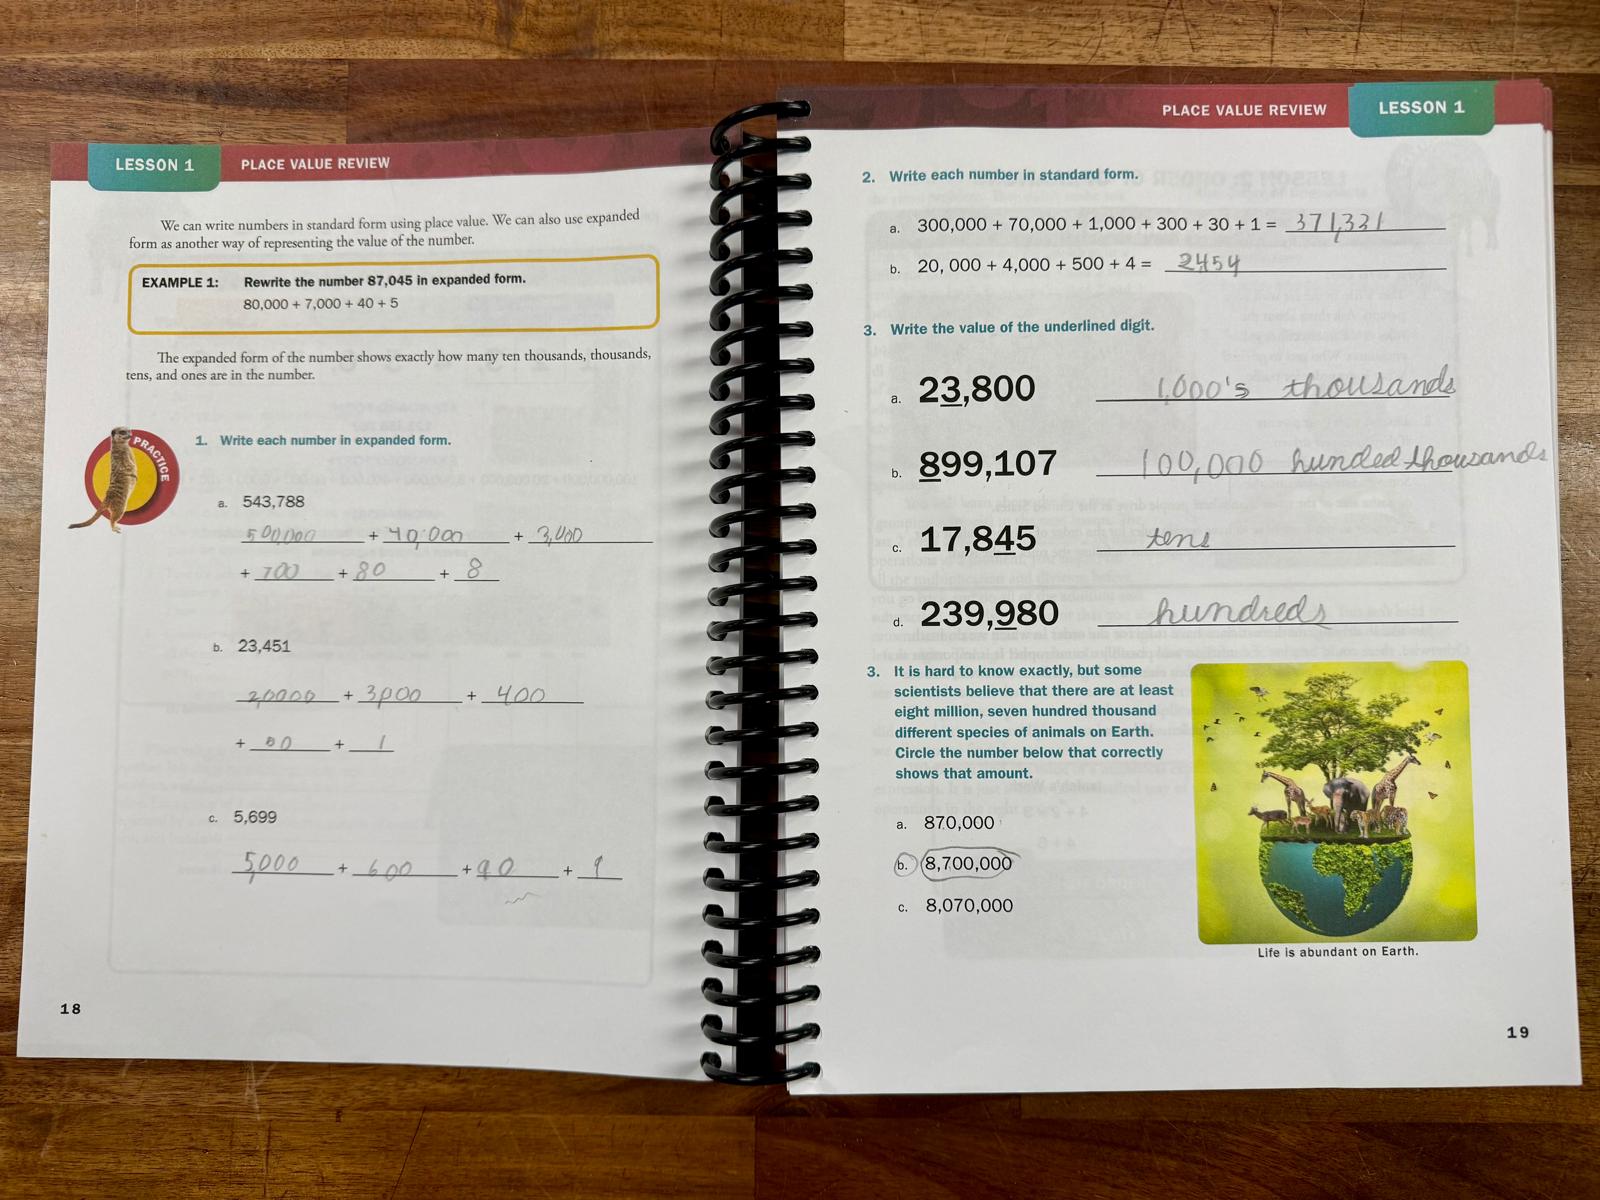 LESSON 1
PLACE VALUE REVIEW
We can write numbers in standard form using place value. We can also use expanded
form as another way of representing the value of the number.
EXAMPLE 1: Rewrite the number 87,045 in expanded form.
80,000 + 7,000 + 40 + 5
The expanded form of the number shows exactly how many ten thousands, thousands,
tens, and ones are in the number.
PRACTICE
1. Write each number in expanded form.
a. 543,788
500,000 + 40,000 + 3,000
+ 700 + 80 + 8
b. 23,451
20000 + 3,000 + 400
+ + 1
c. 5,699
5,000 + 600 + 90 + 9
18
PLACE VALUE REVIEW
LESSON 1
2. Write each number in standard form.
a. 300,000 + 70,000 + 1,000 + 300 + 30 + 1 = 371,331
b. 20, 000 + 4,000 + 500 + 4 = 2454
3. Write the value of the underlined digit.
a. 23,800 1,000's thousands
b. 899,107 100,000 hunded thousands
c. 17,845 tens
d. 239,980 hundreds
3. It is hard to know exactly, but some
scientists believe that there are at least
eight million, seven hundred thousand
different species of animals on Earth.
Circle the number below that correctly
shows that amount.
a. 870,000
b. 8,700,000
c. 8,070,000
Life is abundant on Earth.
19